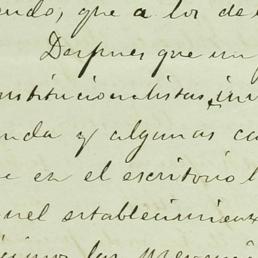 ndo, que a los de
Despues que un
nstitucionalistas, in
nda y algunas ca
e en el escritorio l
nel establecimien